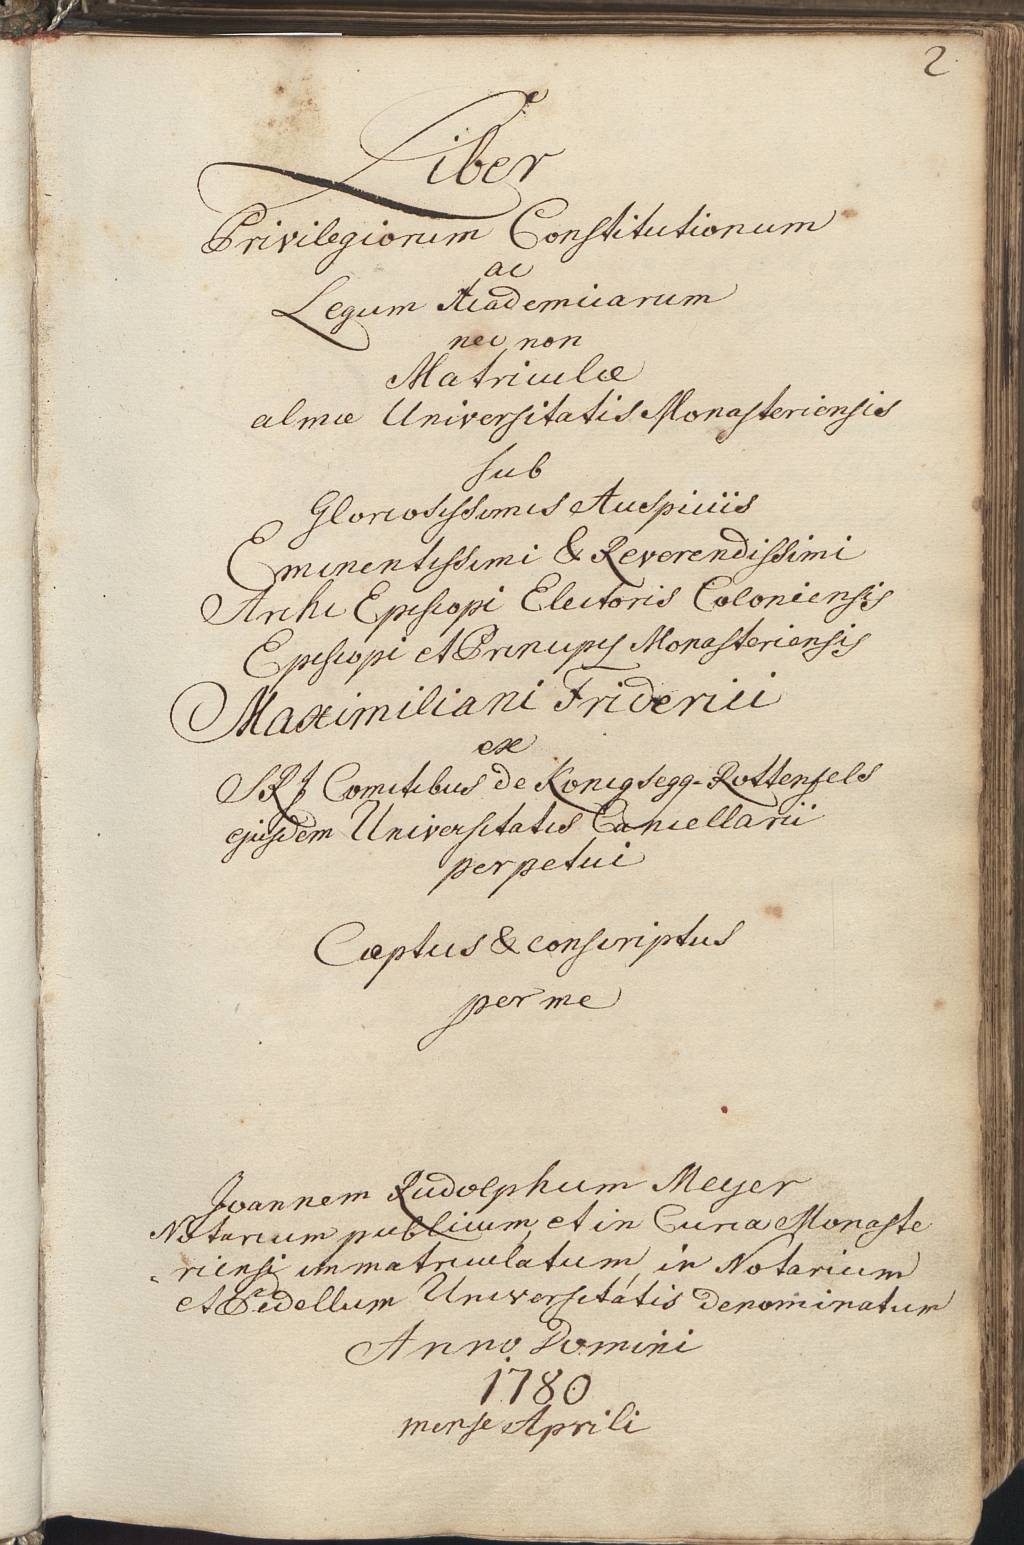 2
Liber
Privilegiorum Constitutionum
ac
Legum Academicarum
nec non
Matriculæ
almæ Universitatis Monasteriensis
sub
Gloriosissimis Auspiciis
Eminentissimi & Reverendissimi
Archi Episcopi Electoris Coloniensis
Episcopi et Principis Monasteriensis
Maximiliani Friderici
ex
SRJ Comitibus de Konigsegg-Rottenfels
ejusdem Universitatis Cancellarii
perpetui
Cœptus & conscriptus
per me
Joannem Rudolphum Meyer
Notarium publicum, et in Curia Monaste
riensi immatriculatum, in Notarium
et Pedellum Universitatis denominatum
Anno Domini
1780
mense Aprili